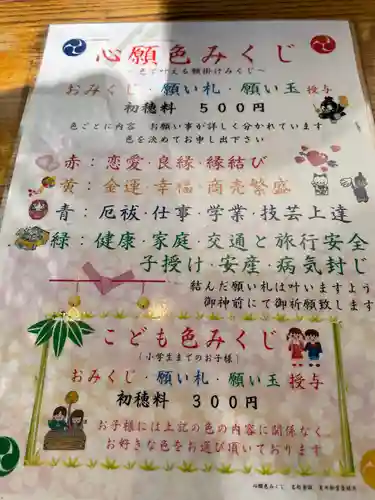 心願色みくじ
～色で叶える願掛けみくじ～
おみくじ・願い札・願い玉 授与
初穂料　５００円
色ごとに内容　お願い事が詳しく分かれています
色を決めてお申し出下さい
赤：恋愛・良縁・縁結び
黄：金運・幸福・商売繁盛
青：厄祓・仕事・学業・技芸上達
緑：健康・家庭・交通と旅行安全
子授け・安産・病気封じ
結んだ願い札は叶いますよう
御神前にて御祈願致します
こども色みくじ
（小学生までのお子様）
おみくじ・願い札・願い玉 授与
初穂料　３００円
お子様には上記の色の内容に関係なく
お好きな色をお選び頂いております
心願色みくじ